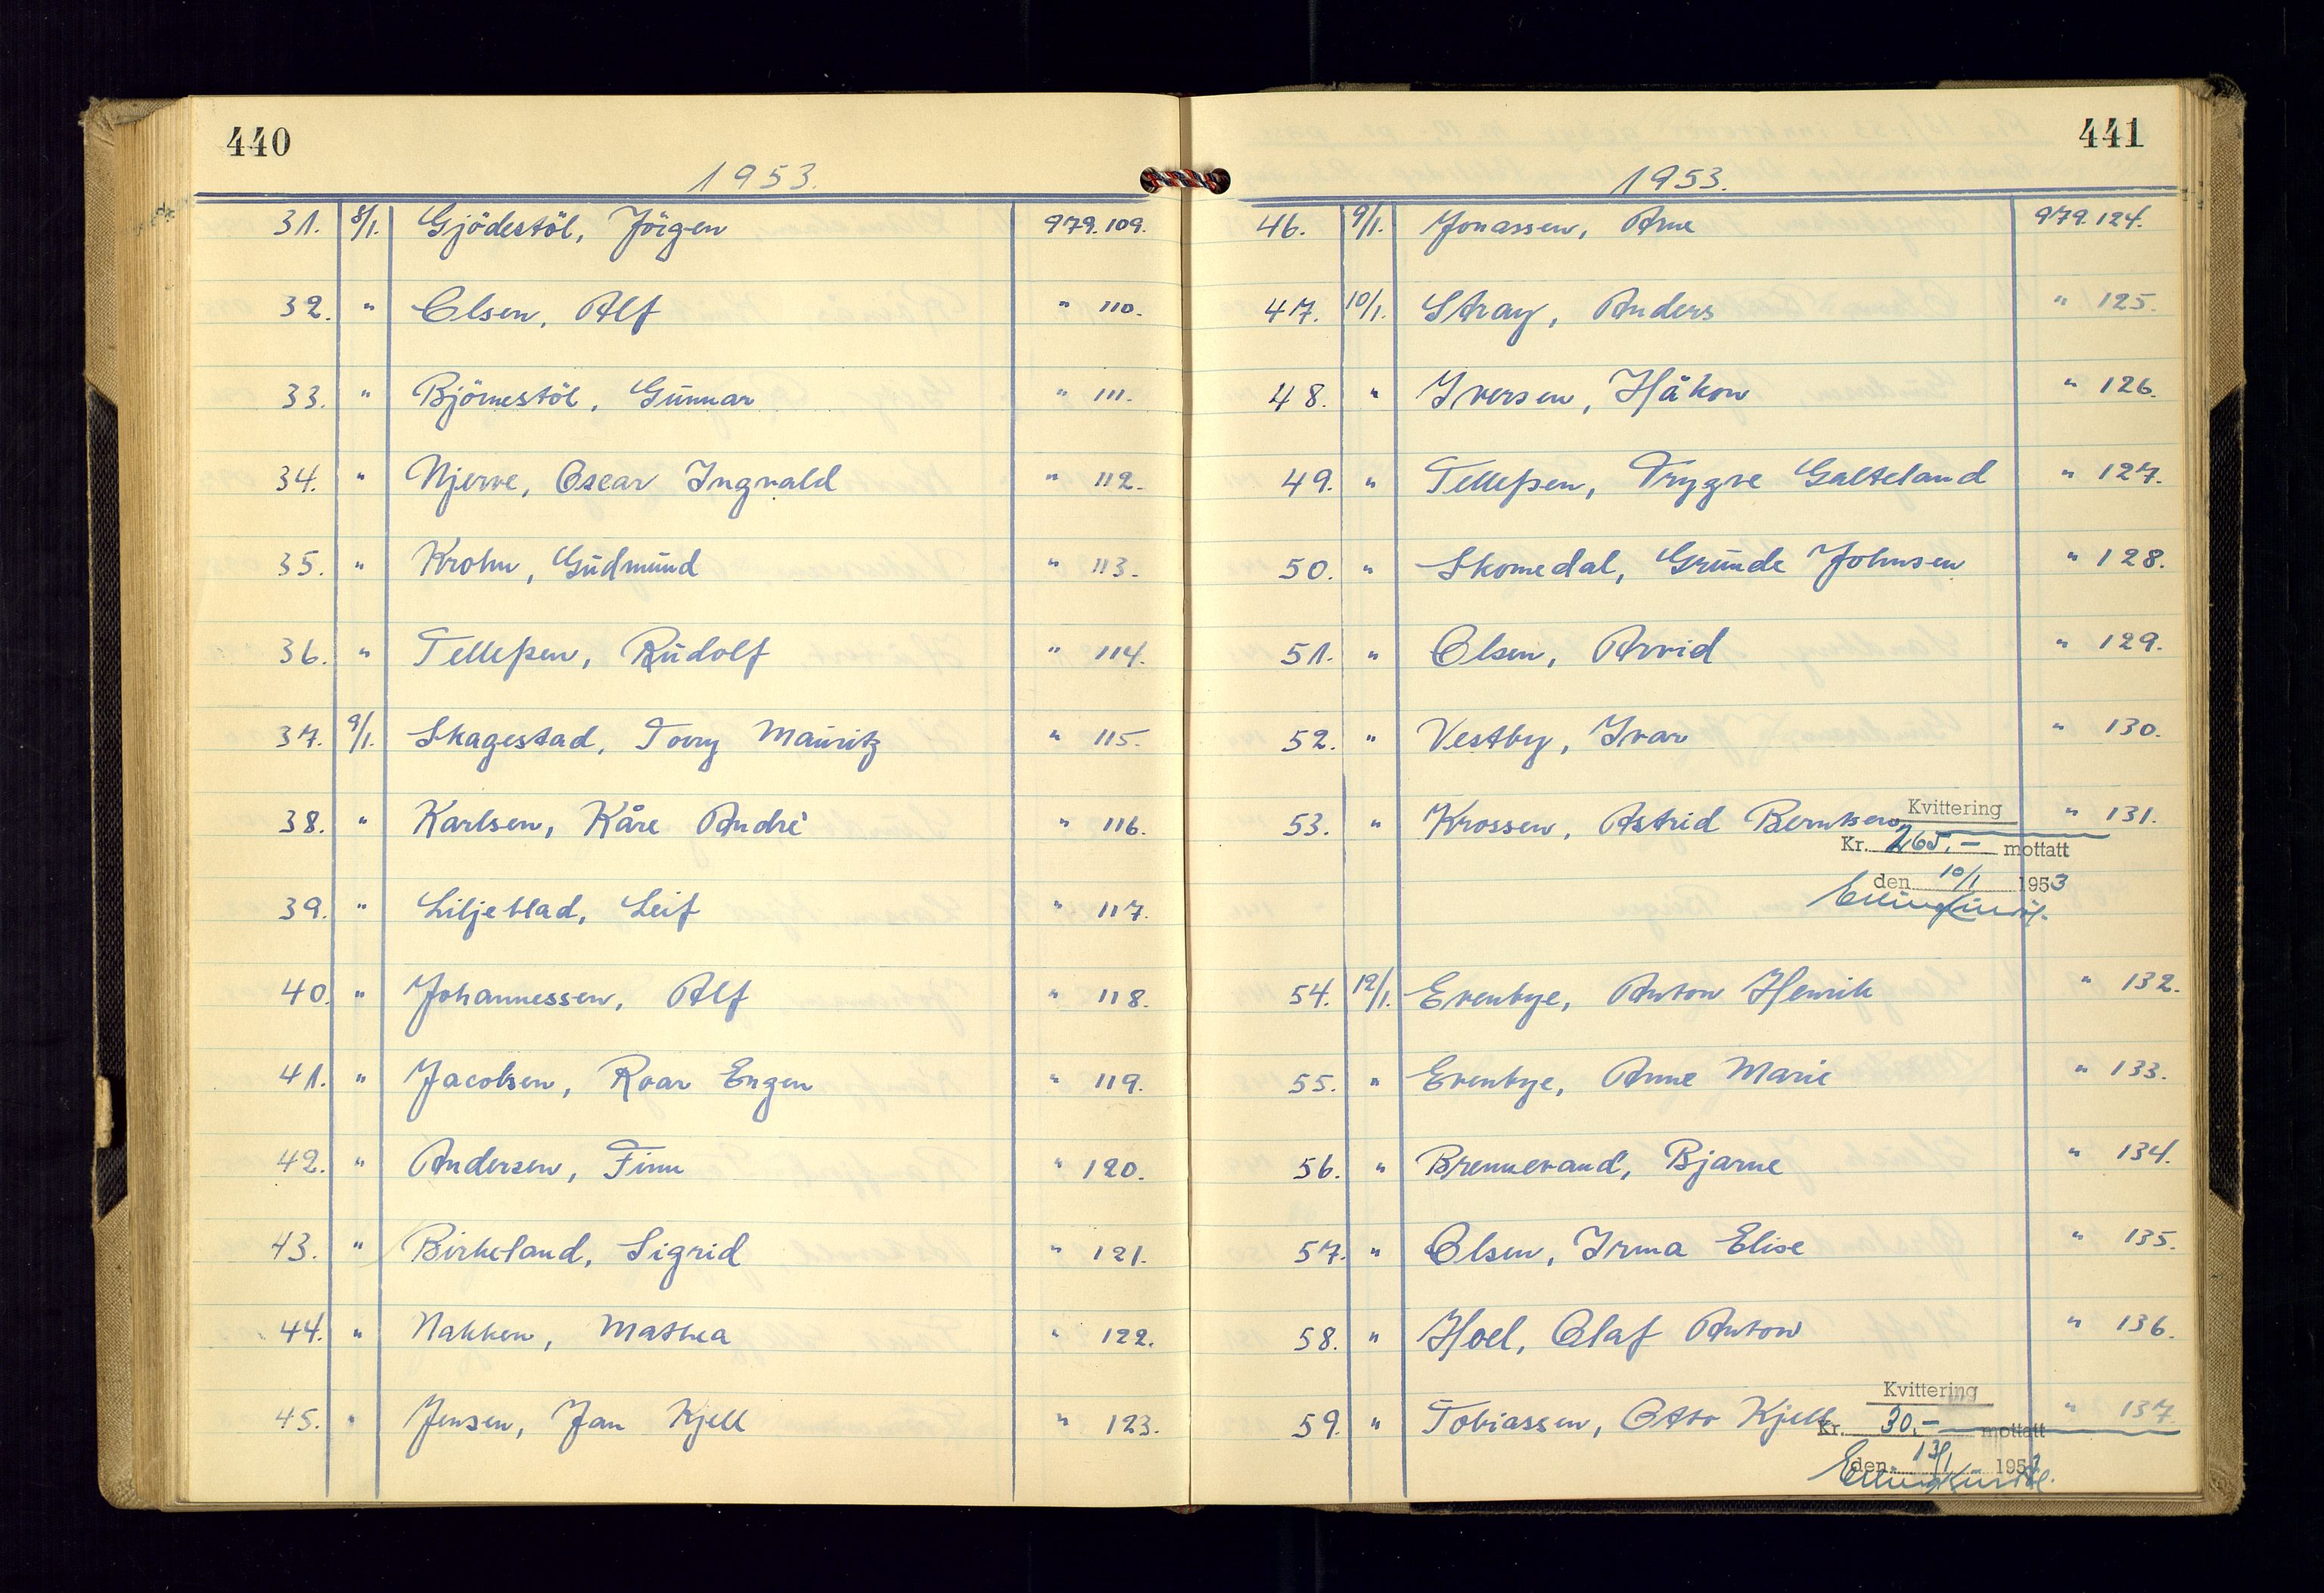 440
1953.
31. 8/1. Gjödestöl, Jörgen 979.109.
32. " Olsen, Alf " 110.
33. " Björnestöl, Gunnar " 111.
34. " Njerve, Oscar Ingvald " 112.
35. " Krohn, Gudmund " 113.
36. " Tellefsen, Rudolf " 114.
37. 9/1. Skagestad, Torry Mauritz " 115.
38. " Karlsen, Kåre André " 116.
39. " Liljeblad, Leif " 117.
40. " Johannessen, Alf " 118.
41. " Jacobsen, Roar Engen " 119.
42. " Andersen, Finn " 120.
43. " Birkeland, Sigrid " 121.
44. " Nakken, Mathea " 122.
45. " Jensen, Jan Kjell " 123.
441
1953.
46. 9/1. Jonassen, Arne 979.124.
47. 10/1. Stray, Anders " 125.
48. " Iversen, Håkon " 126.
49. " Tellefsen, Trygve Galteland " 127.
50. " Skomedal, Grunde Johnsen " 128.
51. " Olsen, Arvid " 129.
52. " Vestby, Ivar " 130.
53. " Krossen, Astrid Berntsen " 131.
Kvittering
Kr. 265.- mottatt
den 10/1 1953
54. 12/1. Evenbye, Anton Henrik " 132.
55. " Evenbye, Anne Marie " 133.
56. " Brennevand, Bjarne " 134.
57. " Olsen, Irma Elise " 135.
58. " Hoel, Olaf Anton " 136.
59. " Tobiassen, Otto Kjell " 137.
Kvittering
Kr. 30.- mottatt
den 13/1 1953